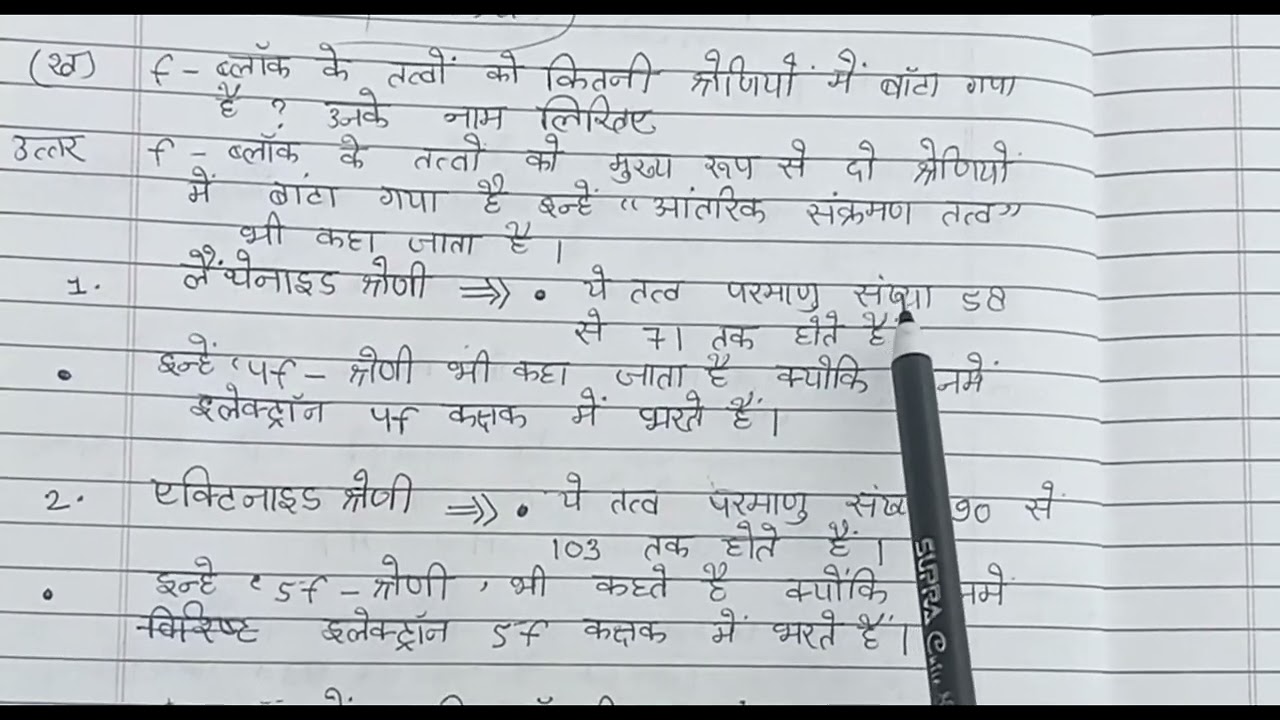 (ख) f - ब्लॉक के तत्वों को कितनी श्रेणियों में बॉटा गया
है ? उनके नाम लिखिए
उत्तर f - ब्लॉक के तत्वों को मुख्य रूप से दो श्रेणियों
में बांटा गया है इन्हें "आंतरिक संक्रमण तत्व"
भी कहा जाता है ।
1. लैंथेनाइड श्रेणी ⇒» • ये तत्व परमाणु संख्या 58
से 71 तक होते है
• इन्हें '4f - श्रेणी भी कहा जाता है क्योकि नमें
इलेक्ट्रॉन 4f कक्षक में भरते हैं ।
2. एक्टिनाइड श्रेणी ⇒» • ये तत्व परमाणु संख 90 सें
103 तक होते हैं ।
• इन्हे '5f - श्रेणी ' भी कहते है क्योंकि नमे
इलेक्ट्रॉन 5f कक्षक में भरते हैं ।
SUPRA